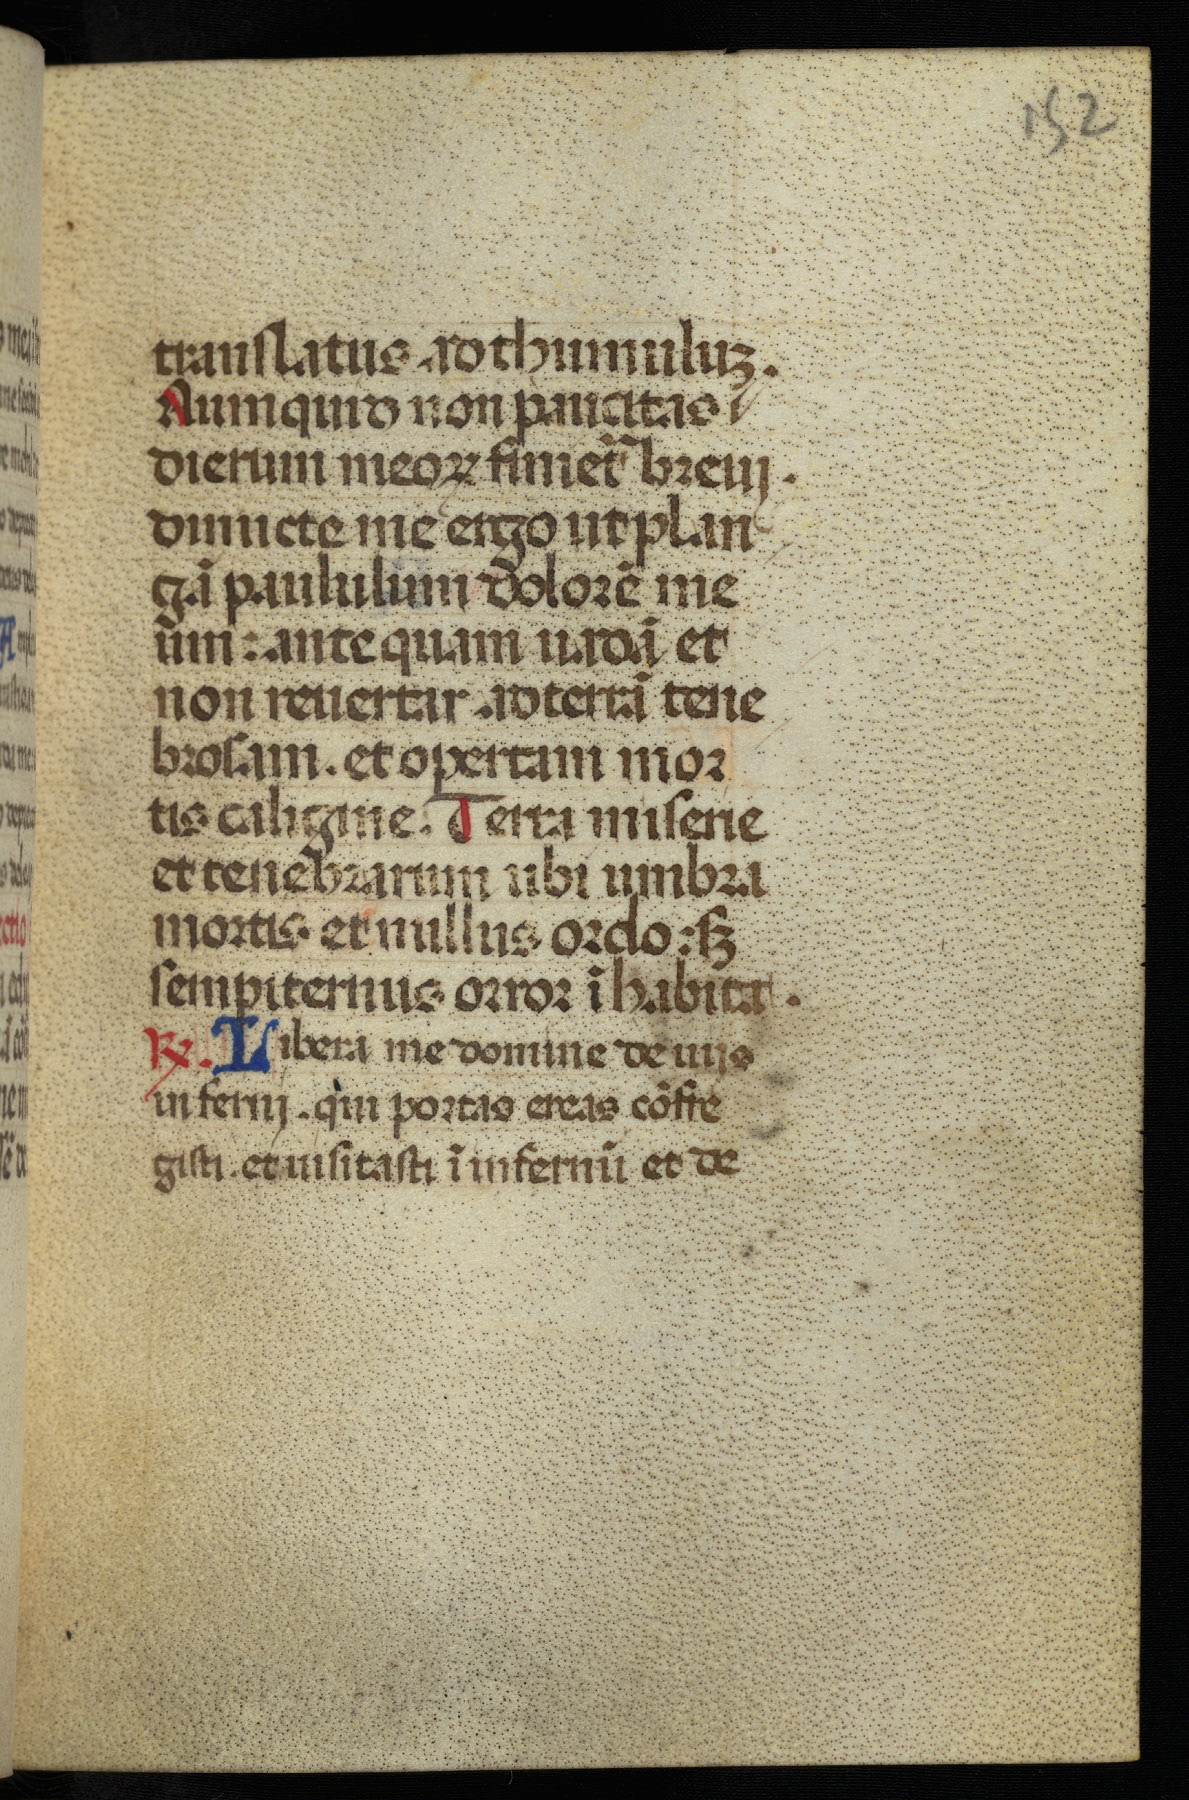 152
translatus ad thumuluz.
Numquid non paucitas
dierum meoꝝ finiet᷑ breuj.
dimicte me ergo ut plan
gā paululum dolorē me
ūm: ante quam uadā et
non reuertar ad terrā tene
brosam. et opertam mor
tis caligine. Terra miserie
et tenebrarum ubi umbra
mortis et nullus ordo: sꝫ
sempiternus orror ī habita.
℞. Libera me domine de uijs
infernj. qui portas ereas cōfre
gisti. et uisitasti ī infernū et de